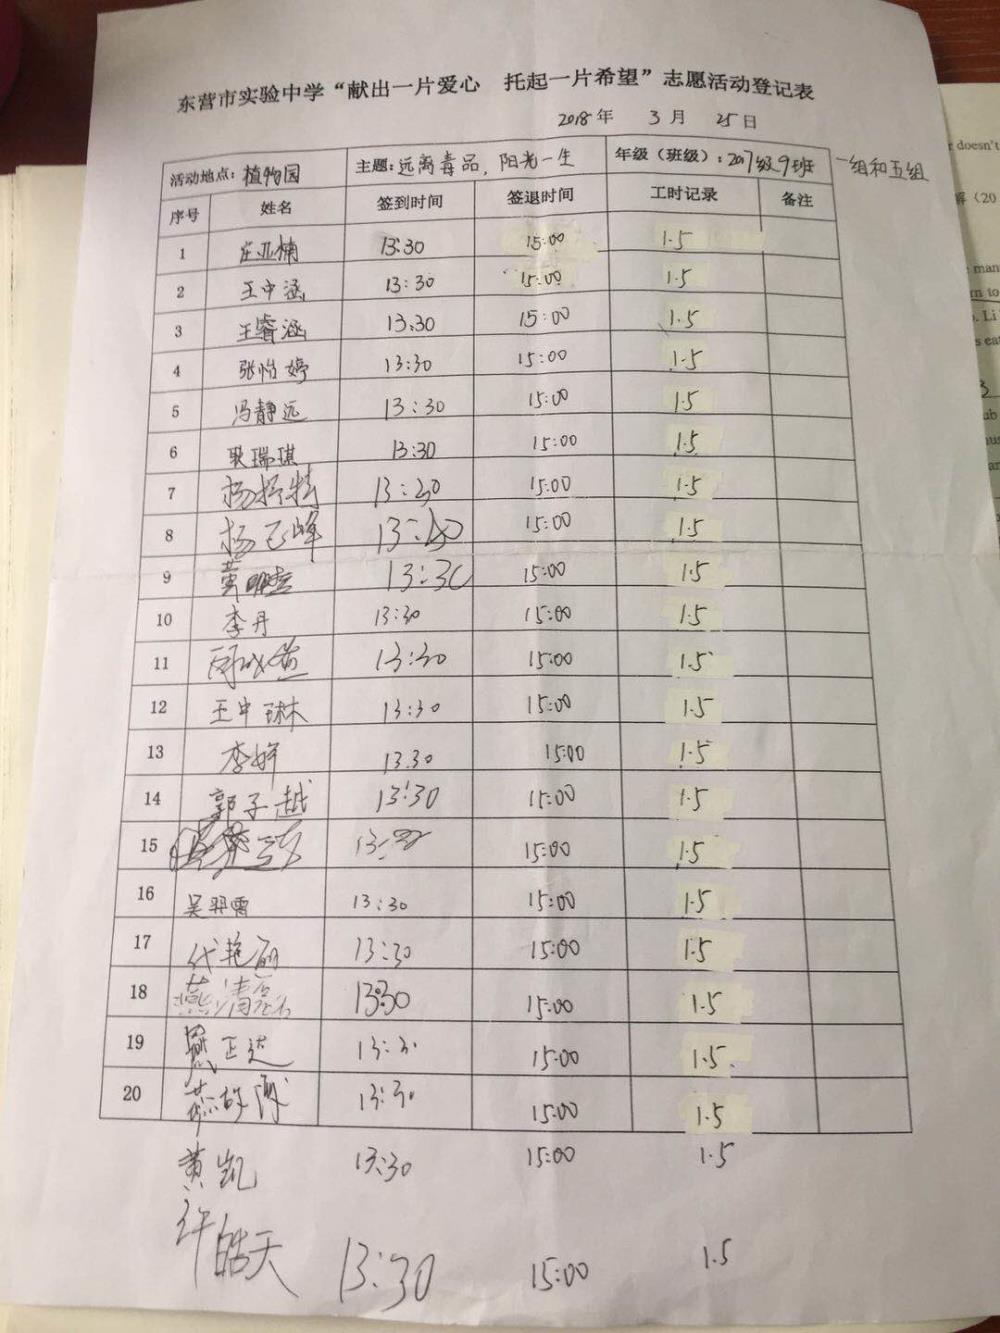 东营市实验中学“献出一片爱心 托起一片希望”志愿活动登记表
2018年 3月 25日
活动地点：植物园 主题：远离毒品，阳光一生 年级（班级）：2017级9班 一组和五组
序号 姓名 签到时间 签退时间 工时记录 备注
1 庄亚楠 13:30 15:00 1.5
2 王中涵 13:30 15:00 1.5
3 王睿涵 13:30 15:00 1.5
4 张怡婷 13:30 15:00 1.5
5 冯静远 13:30 15:00 1.5
6 耿瑞琪 13:30 15:00 1.5
7 杨 13:30 15:00 1.5
8 杨飞峰 13:30 15:00 1.5
9 黄 13:30 15:00 1.5
10 李丹 13:30 15:00 1.5
11 13:30 15:00 1.5
12 王中琳 13:30 15:00 1.5
13 李婷 13.30 15:00 1.5
14 郭子越 13:30 15:00 1.5
15 15:00 1.5
16 吴羿霄 13:30 15:00 1.5
17 代艳丽 13:30 15:00 1.5
18 燕清 13:30 15:00 1.5
19 正达 13:3 15:00 1.5
20 13:30 15:00 1.5
黄凯 13:30 15:00 1.5
许皓天 13:30 15:00 1.5
doesn't
解（20
man